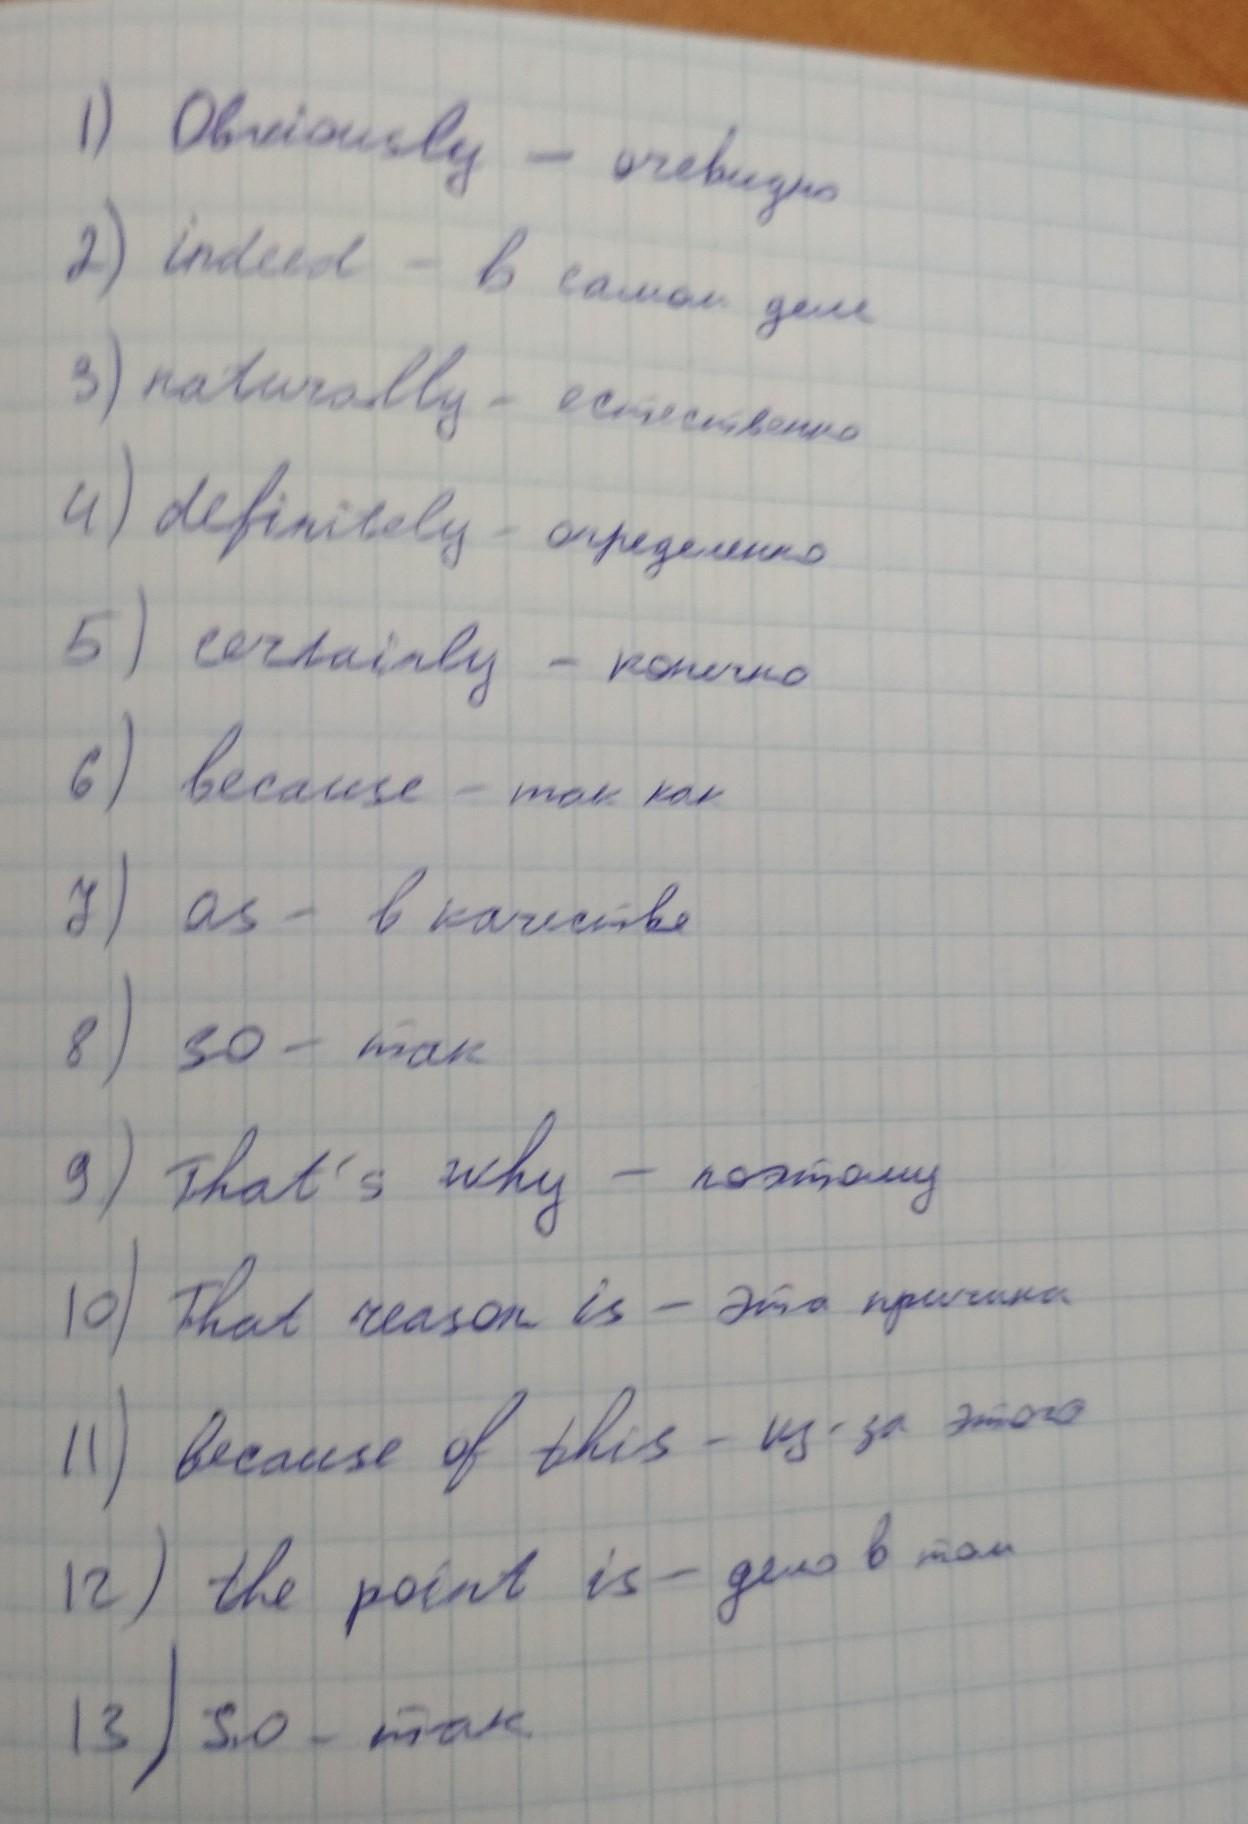 1) Obviously – очевидно
2) indeed – в самом деле
3) naturally – естественно
4) definitely – определенно
5) certainly – конечно
6) because – так как
7) as – в качестве
8) so – так
9) That's why – поэтому
10) That reason is – эта причина
11) because of this – из-за этого
12) the point is – дело в том
13) so – так